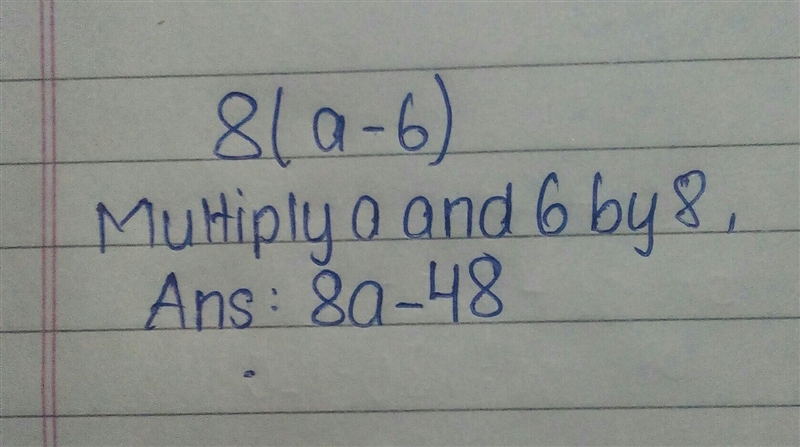 8(a-6)
Multiply a and 6 by 8,
Ans: 8a-48